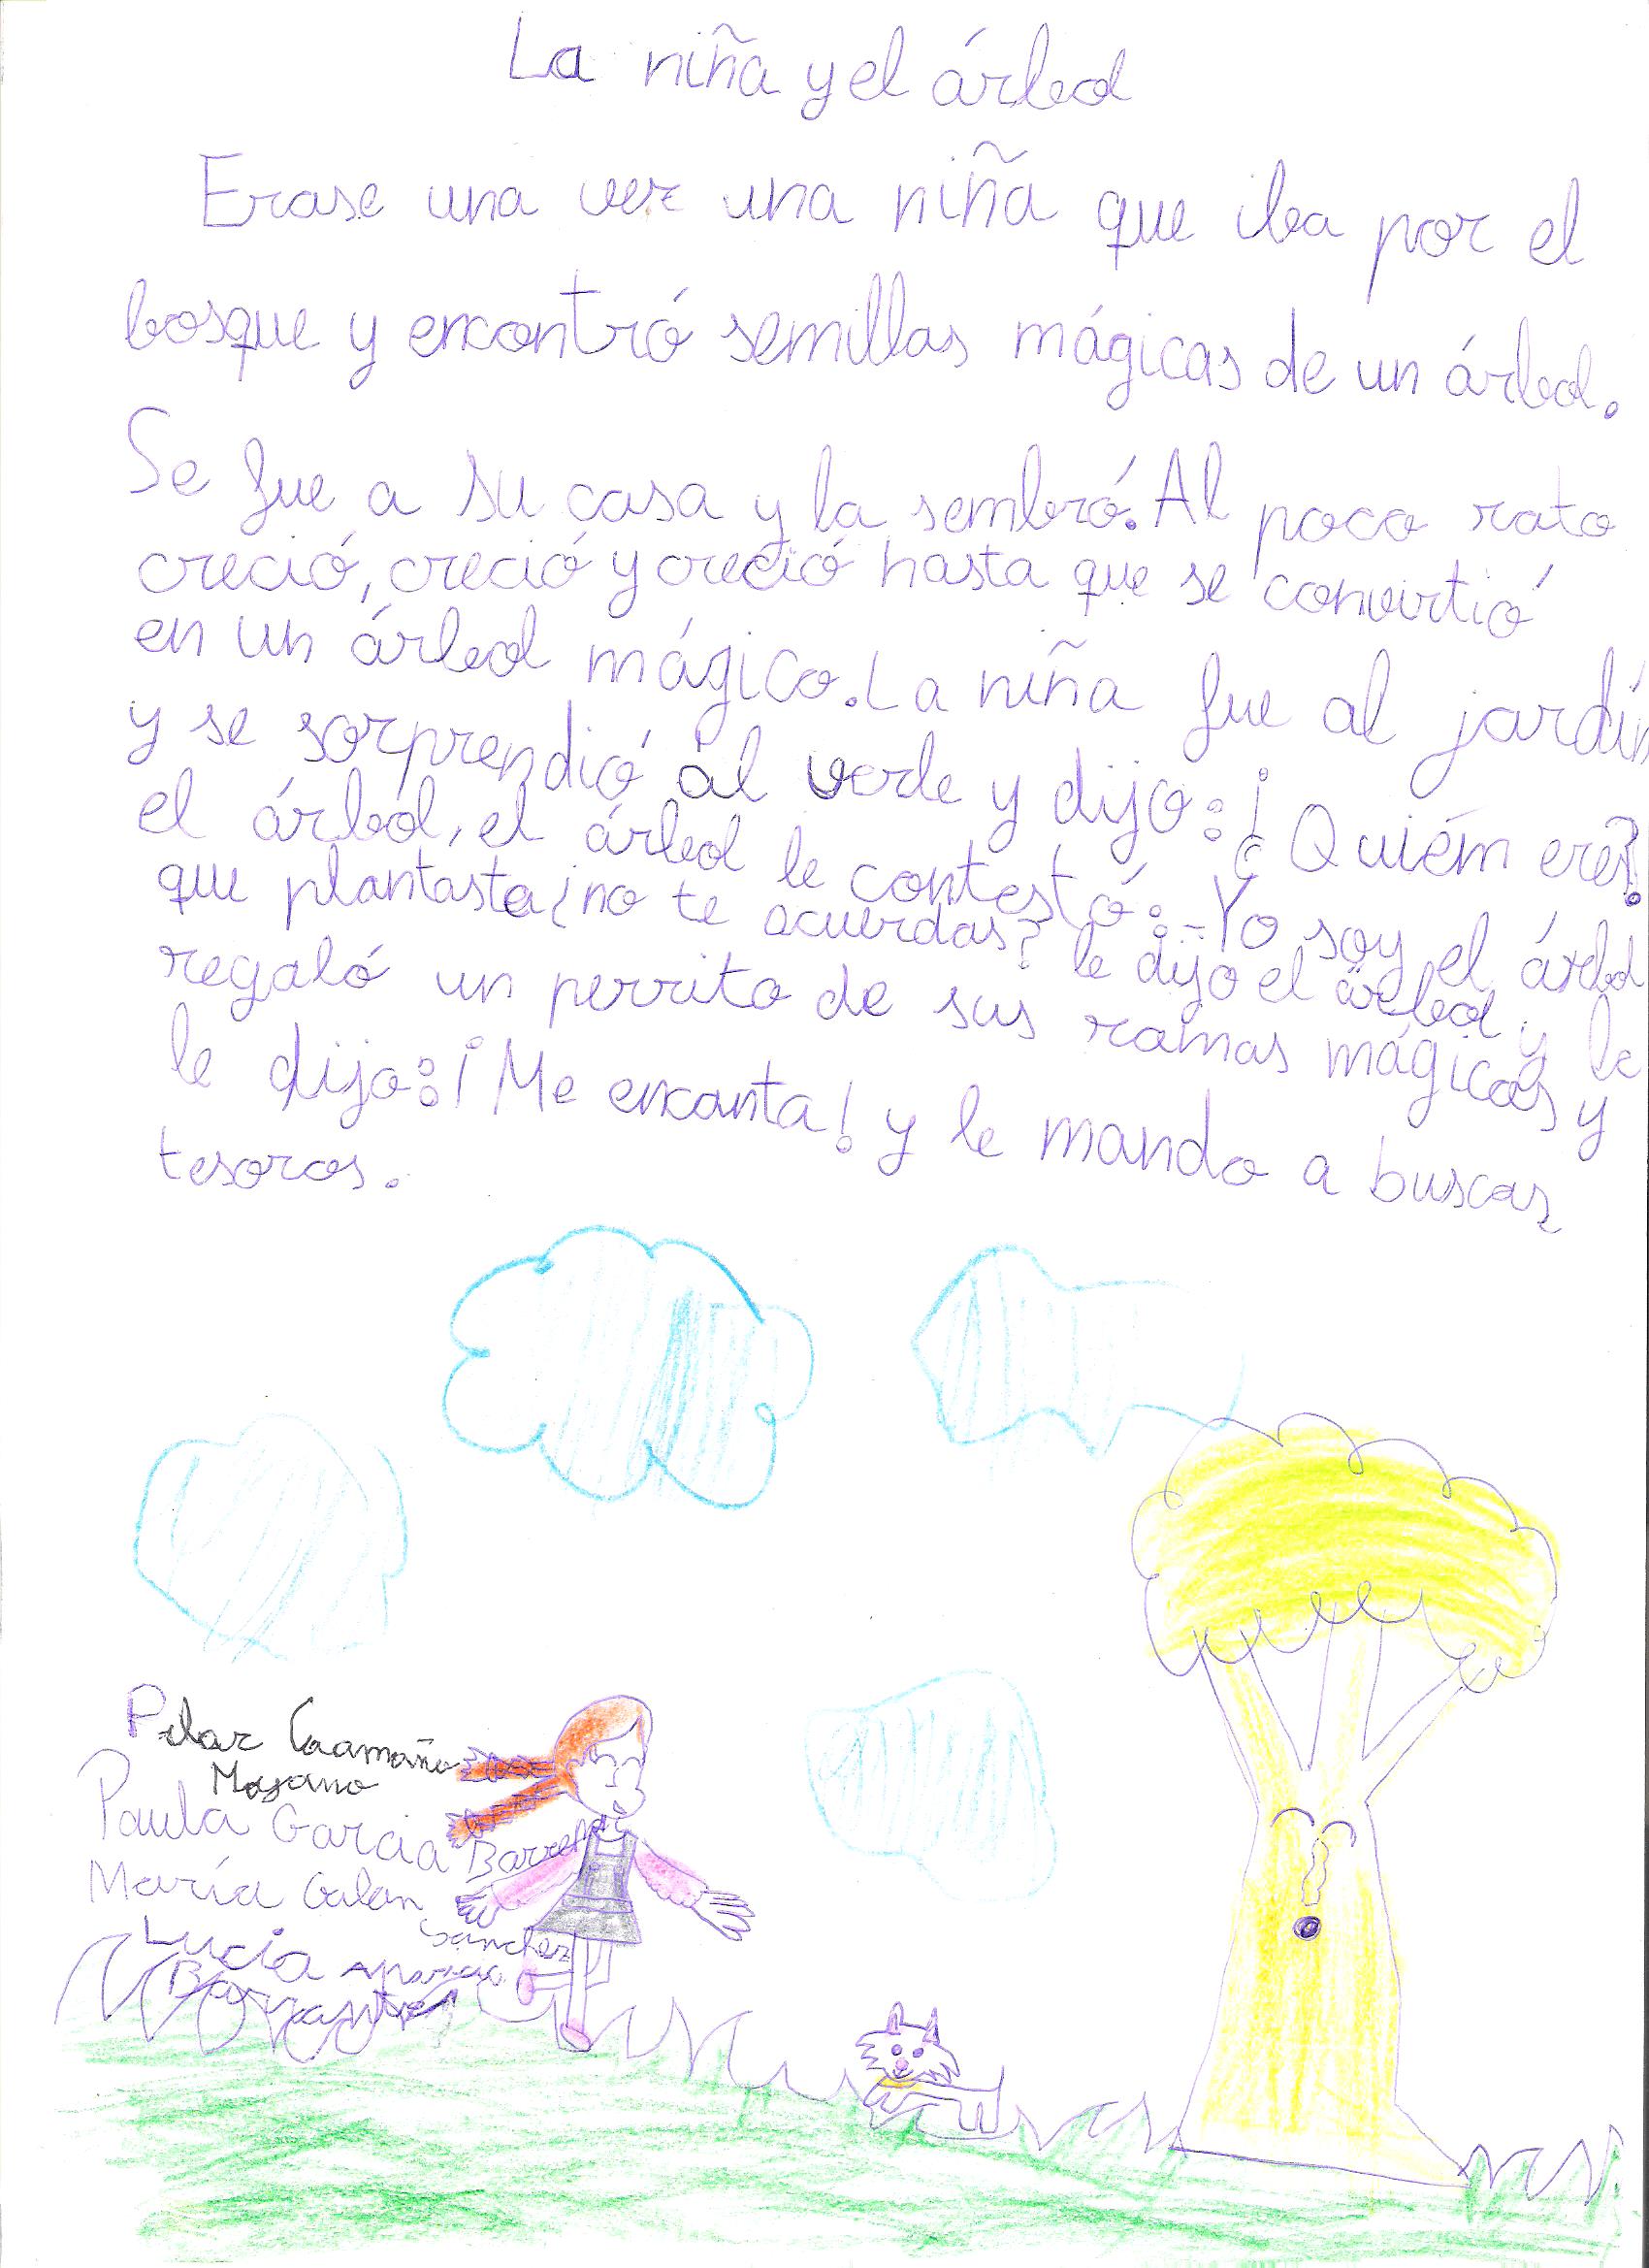 La niña y el árbol
Erase una vez una niña que iba por el
bosque y encontró semillas mágicas de un árbol.
Se fue a su casa y la sembró. Al poco rato
creció, creció y creció hasta que se convirtió
en un árbol mágico. La niña fue al jardín
y se sorprendió al verle y dijo: ¡¿Quién eres?
el árbol, el árbol le contestó: -Yo soy el árbol
que plantaste ¿no te acuerdas? le dijo el árbol y le
regaló un perrito de sus ramas mágicas y
le dijo: ¡Me encanta! y le mando a buscar
tesoros.
Pilar Caamaño
Moyano
Paula Garcia Barrel
María Galan
Sanchez
Lucía Aparicio
Barrantes